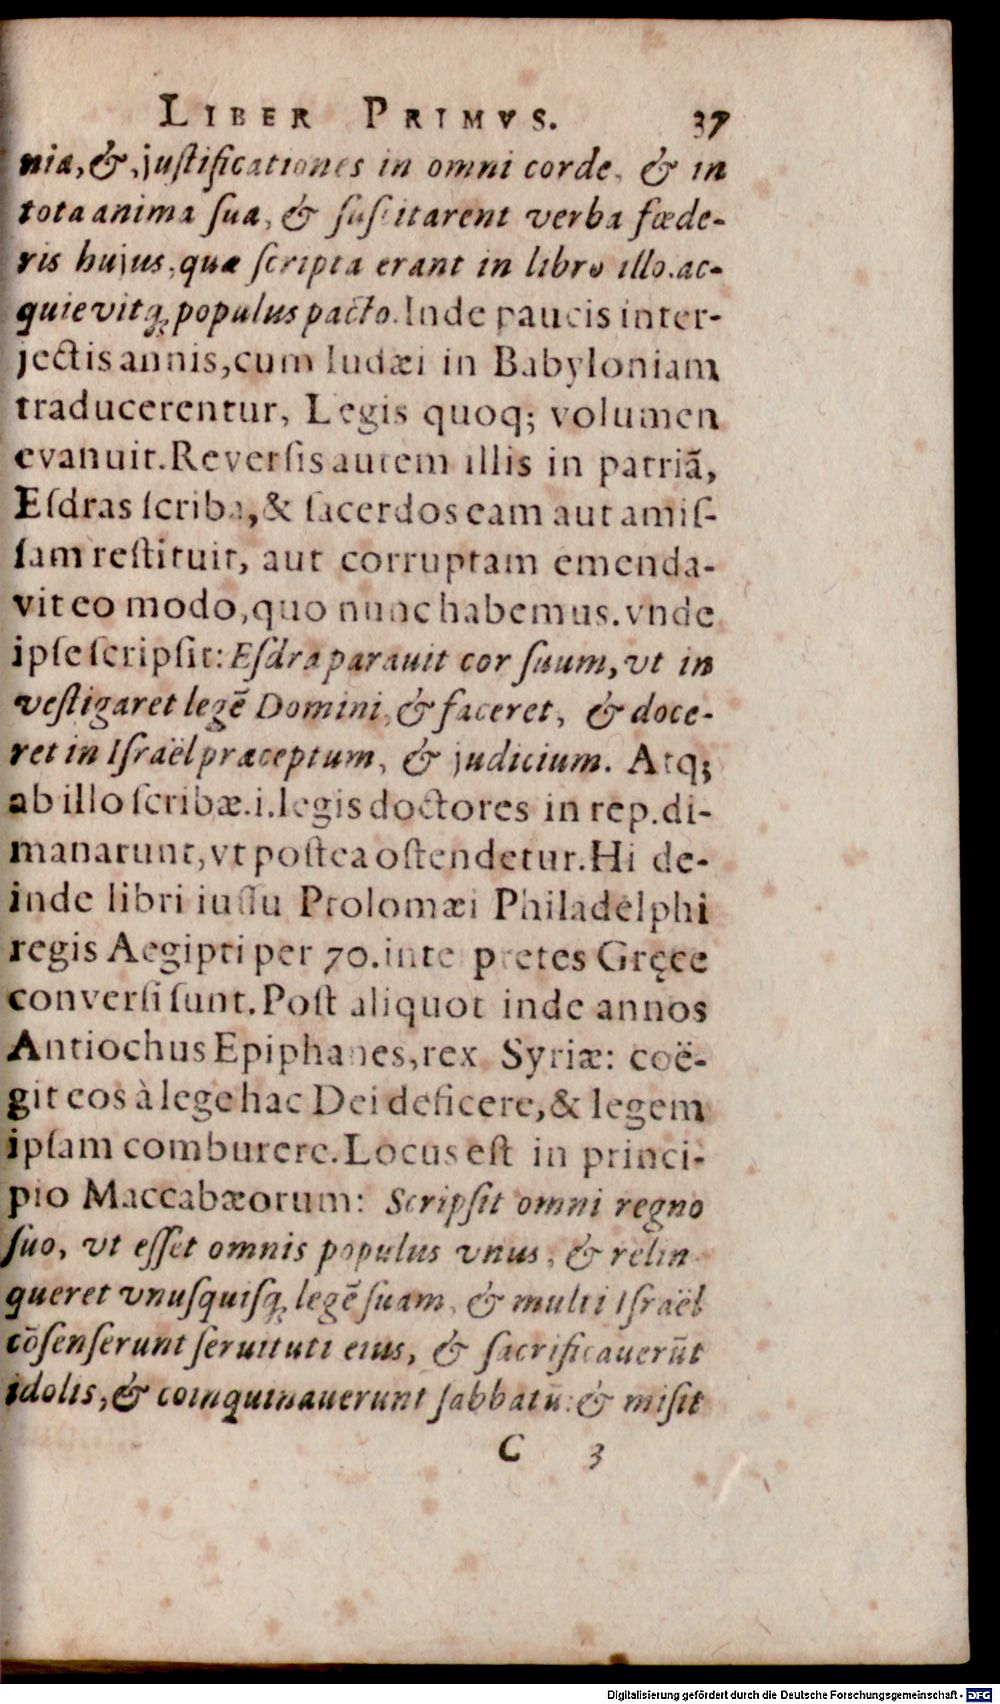 LIBER PRIMVS. 37
nia, & justificationes in omni corde, & in
tota anima ſua, & ſuſcitarent verba fœde-
ris hujus, quæ ſcripta erant in libro illo. ac-
quievitq; populus pacto. Inde paucis inter-
jectis annis, cum Iudæi in Babyloniam
traducerentur, Legis quoq; volumen
evanuit. Reverſis autem illis in patriã,
Eſdras ſcriba, & ſacerdos eam aut amiſ-
ſam reſtituit, aut corruptam emenda-
vit eo modo, quo nunc habemus. vnde
ipſe ſcripſit: Eſdra parauit cor ſuum, vt in
veſtigaret legẽ Domini, & faceret, & doce-
ret in Iſraël præceptum, & judicium. Atq;
ab illo ſcribæ .i. legis doctores in rep. di-
manarunt, vt poſtea oſtendetur. Hi de-
inde libri iuſſu Ptolomæi Philadelphi
regis Aegipti per 70. interpretes Gręce
converſi ſunt. Poſt aliquot inde annos
Antiochus Epiphanes, rex Syriæ: coë-
git eos à lege hac Dei deficere, & legem
ipſam comburere. Locus eſt in princi-
pio Maccabæorum: Scripſit omni regno
ſuo, vt eſſet omnis populus vnus, & relin
queret vnuſquiſq; legẽ ſuam, & multi Iſraël
cõſenſerunt ſeruituti eius, & ſacrificauerũt
idolis, & coinquinauerunt ſabbatũ: & miſit
C 3
Digitalisierung gefördert durch die Deutsche Forschungsgemeinschaft - DFG